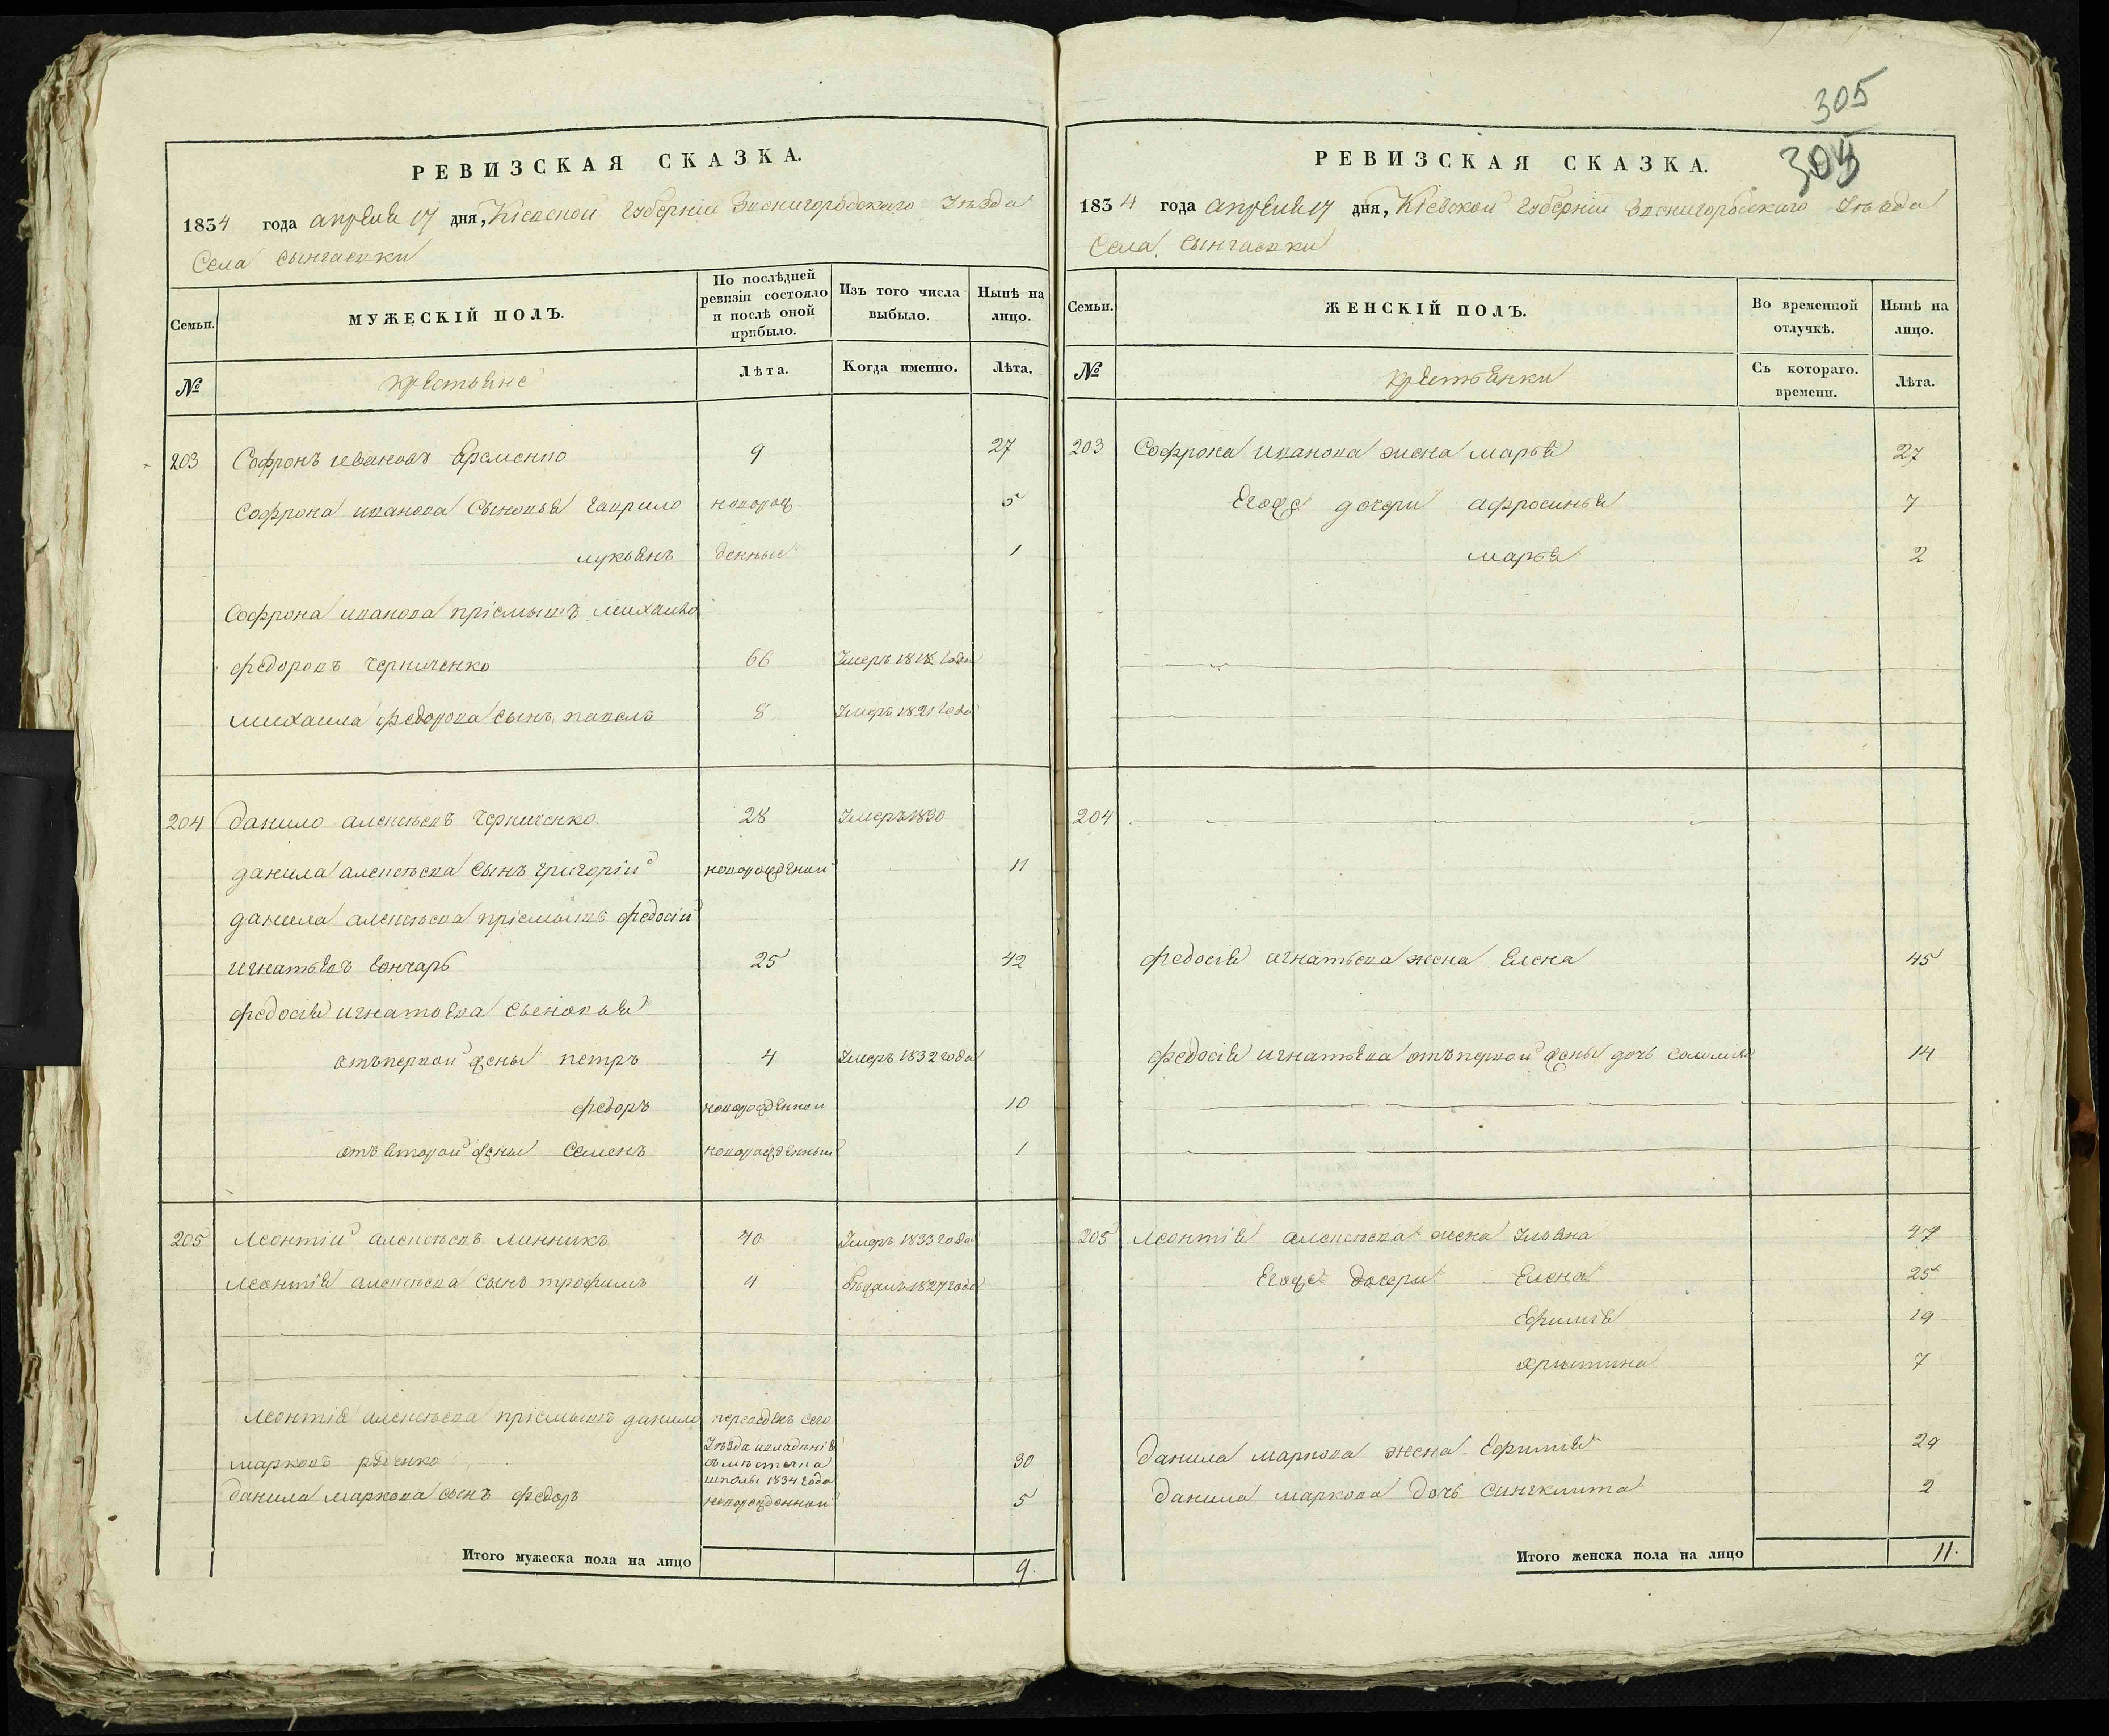 305
305
РЕВИЗСКАЯ СКАЗКА.
1834 года апреля 17 дня, Кіевской Губерніи Звенигородскаго Уѣзда
Села
Семьи.
МУЖЕСКІЙ ПОЛЪ.
По послѣдней ревизіи состояло и послѣ оной прибыло.
Изъ того числа выбыло.
Нынѣ на лицо.
№
крестьяне
Лѣта.
Когда именно.
Лѣта.
203 Софронъ Ивановъ Яременко 9 27
Софрона иванова Сыновья гаврило новорож 5
лукьянъ денные 1
Софрона иванова пріемышъ михайло
федоровъ черниченко 66 Умеръ 1818 года
михаила федорова сынъ павелъ 8 Умеръ 1821 года
204 данило алексѣевъ черниченко 28 Умеръ 1830
данила алексѣева сынъ григорій новорожденый 11
данила алексѣева пріемышъ федосій
игнатьевъ гончаръ 25 42
федосія игнатьева сыновья
отъ первой жены петръ 4 Умеръ 1832 года
федоръ новорожденной 10
отъ второй жены Семенъ новорожденный 1
205 Леонтій алексѣевъ линникъ 40 Умеръ 1833 года
Леонтія алексѣева сынъ трофимъ 4 бѣжалъ 1827 года
Леонтія алексѣева пріемышъ данило переведенъ сего
Уѣзда изъ владѣнія
марковъ 30
мѣстечка
шполы 1834 года
данила маркова сынъ федоръ новорожденной 5
Итого мужеска пола на лицо 9.
РЕВИЗСКАЯ СКАЗКА.
1834 года апреля 17 дня, Кіевской Губерніи Звенигородскаго Уѣзда
Села
Семьи.
ЖЕНСКІЙ ПОЛЪ.
Во временной отлучкѣ.
Нынѣ на лицо.
№
крестьянки
Съ котораго. времени.
Лѣта.
203 Софрона иванова жена марья 27
Егоже дочери афросинья 7
марья 2
204
федосія игнатьева жена Елена 45
федосія игнатьева отъ первой жены дочь 14
205 Леонтія алексѣева жена Ульяна 47
Егоже дочери Елена 25
Ефимія 19
христина 7
данила маркова жена Ефимія 29
данила маркова дочь синклита 2
Итого женска пола на лицо 11.